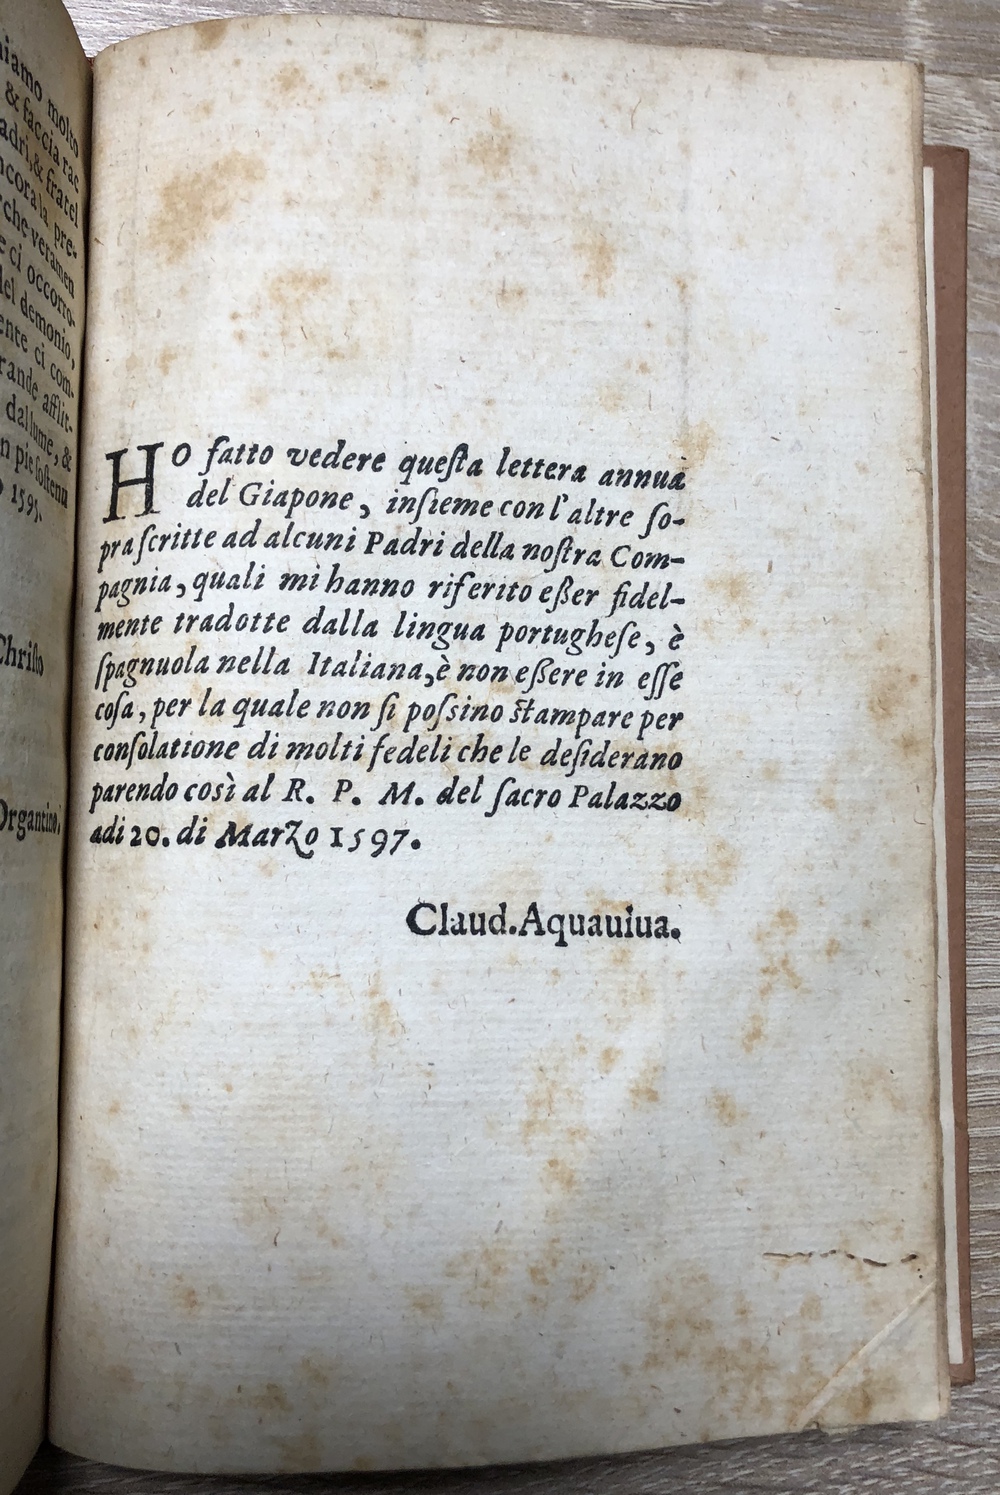 niamo molto
& faccia rac
adri, & fratel
ncora la pre-
rche veramen
e ci occorro-
del demonio,
ente ci com-
rande afflit-
dal lume, &
n pie sostenu
1595.
Christo
Organtino.
HO fatto vedere queſta lettera annua
del Giapone, inſieme con l'altre ſo-
praſcritte ad alcuni Padri della noſtra Com-
pagnia, quali mi hanno riferito eſſer fidel-
mente tradotte dalla lingua portugheſe, è
ſpagnuola nella Italiana, è non eſſere in eſſe
coſa, per la quale non ſi poſsino ſtampare per
conſolatione di molti fedeli che le deſiderano
parendo così al R. P. M. del ſacro Palazzo
adi 20. di Marzo 1597.
Claud. Aquauiua.